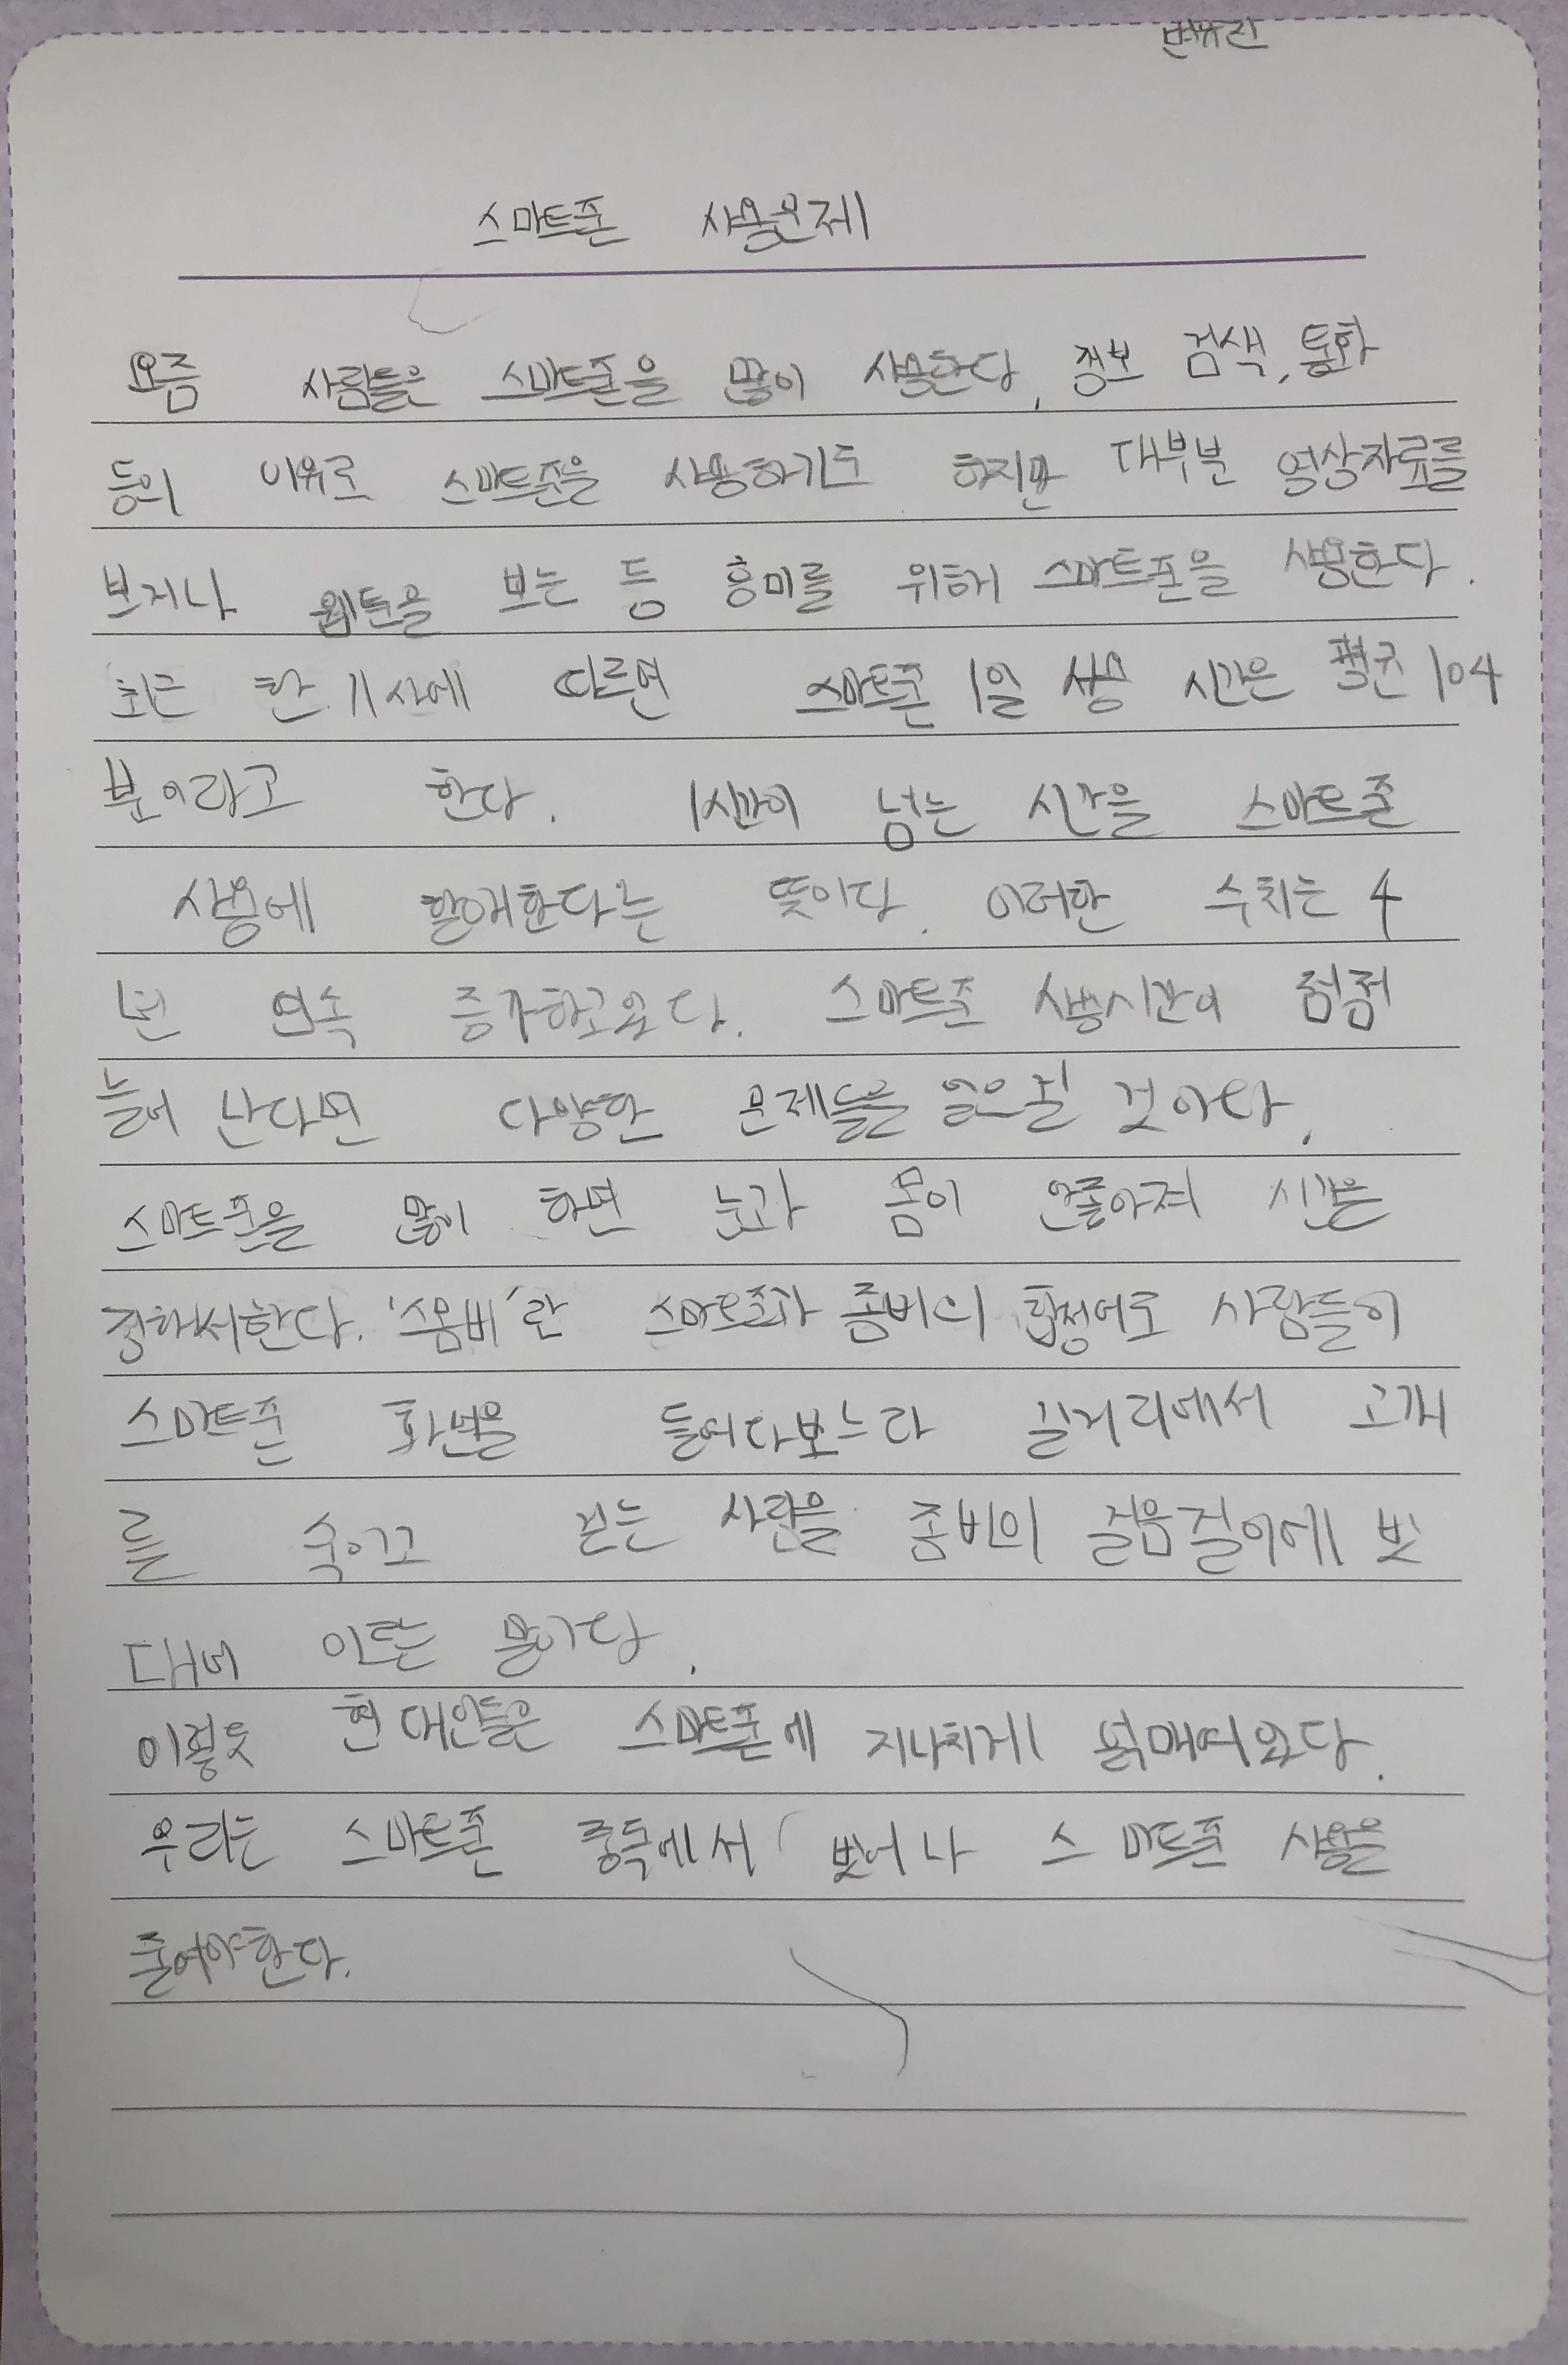 스마트폰 사용문제
요즘 사람들은 스마트폰을 많이 사용한다. 정보 검색, 통화
등의 이유로 스마트폰을 사용하기도 하지만 대부분 영상자료를
보거나 웹툰을 보는 등 흥미를 위해 스마트폰을 사용한다.
최근 한 기사에 따르면 스마트폰 1일 사용 시간은 평균 104
분이라고 한다. 1시간이 넘는 시간을 스마트폰
사용에 할애한다는 뜻이다. 이러한 수치는 4
년 연속 증가하고있다. 스마트폰 사용시간이 점점
늘어 난다면 다양한 문제들을 일으킬 것이다.
스마트폰을 많이 하면 눈과 몸이 안좋아져 시간을
정해서한다. '스몸비'란 스마트폰과 좀비의 합성어로 사람들이
스마트폰 화면을 들여다보느라 길거리에서 고개
를 숙이고 걷는 사람을 좀비의 걸음걸이에 빗
대어 이르는 말이다.
이렇듯 현대인들은 스마트폰에 지나치게 얽매여있다.
우리는 스마트폰 중독에서 벗어나 스마트폰 사용을
줄여야한다.